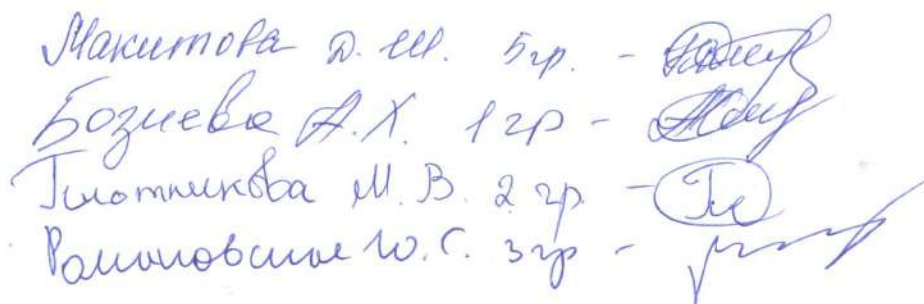 Макитова Д.Ш. 5гр. -
Бозиева А.Х. 1гр -
Плотникова М.В. 2гр. -
Романовская Ю.С. 3гр -